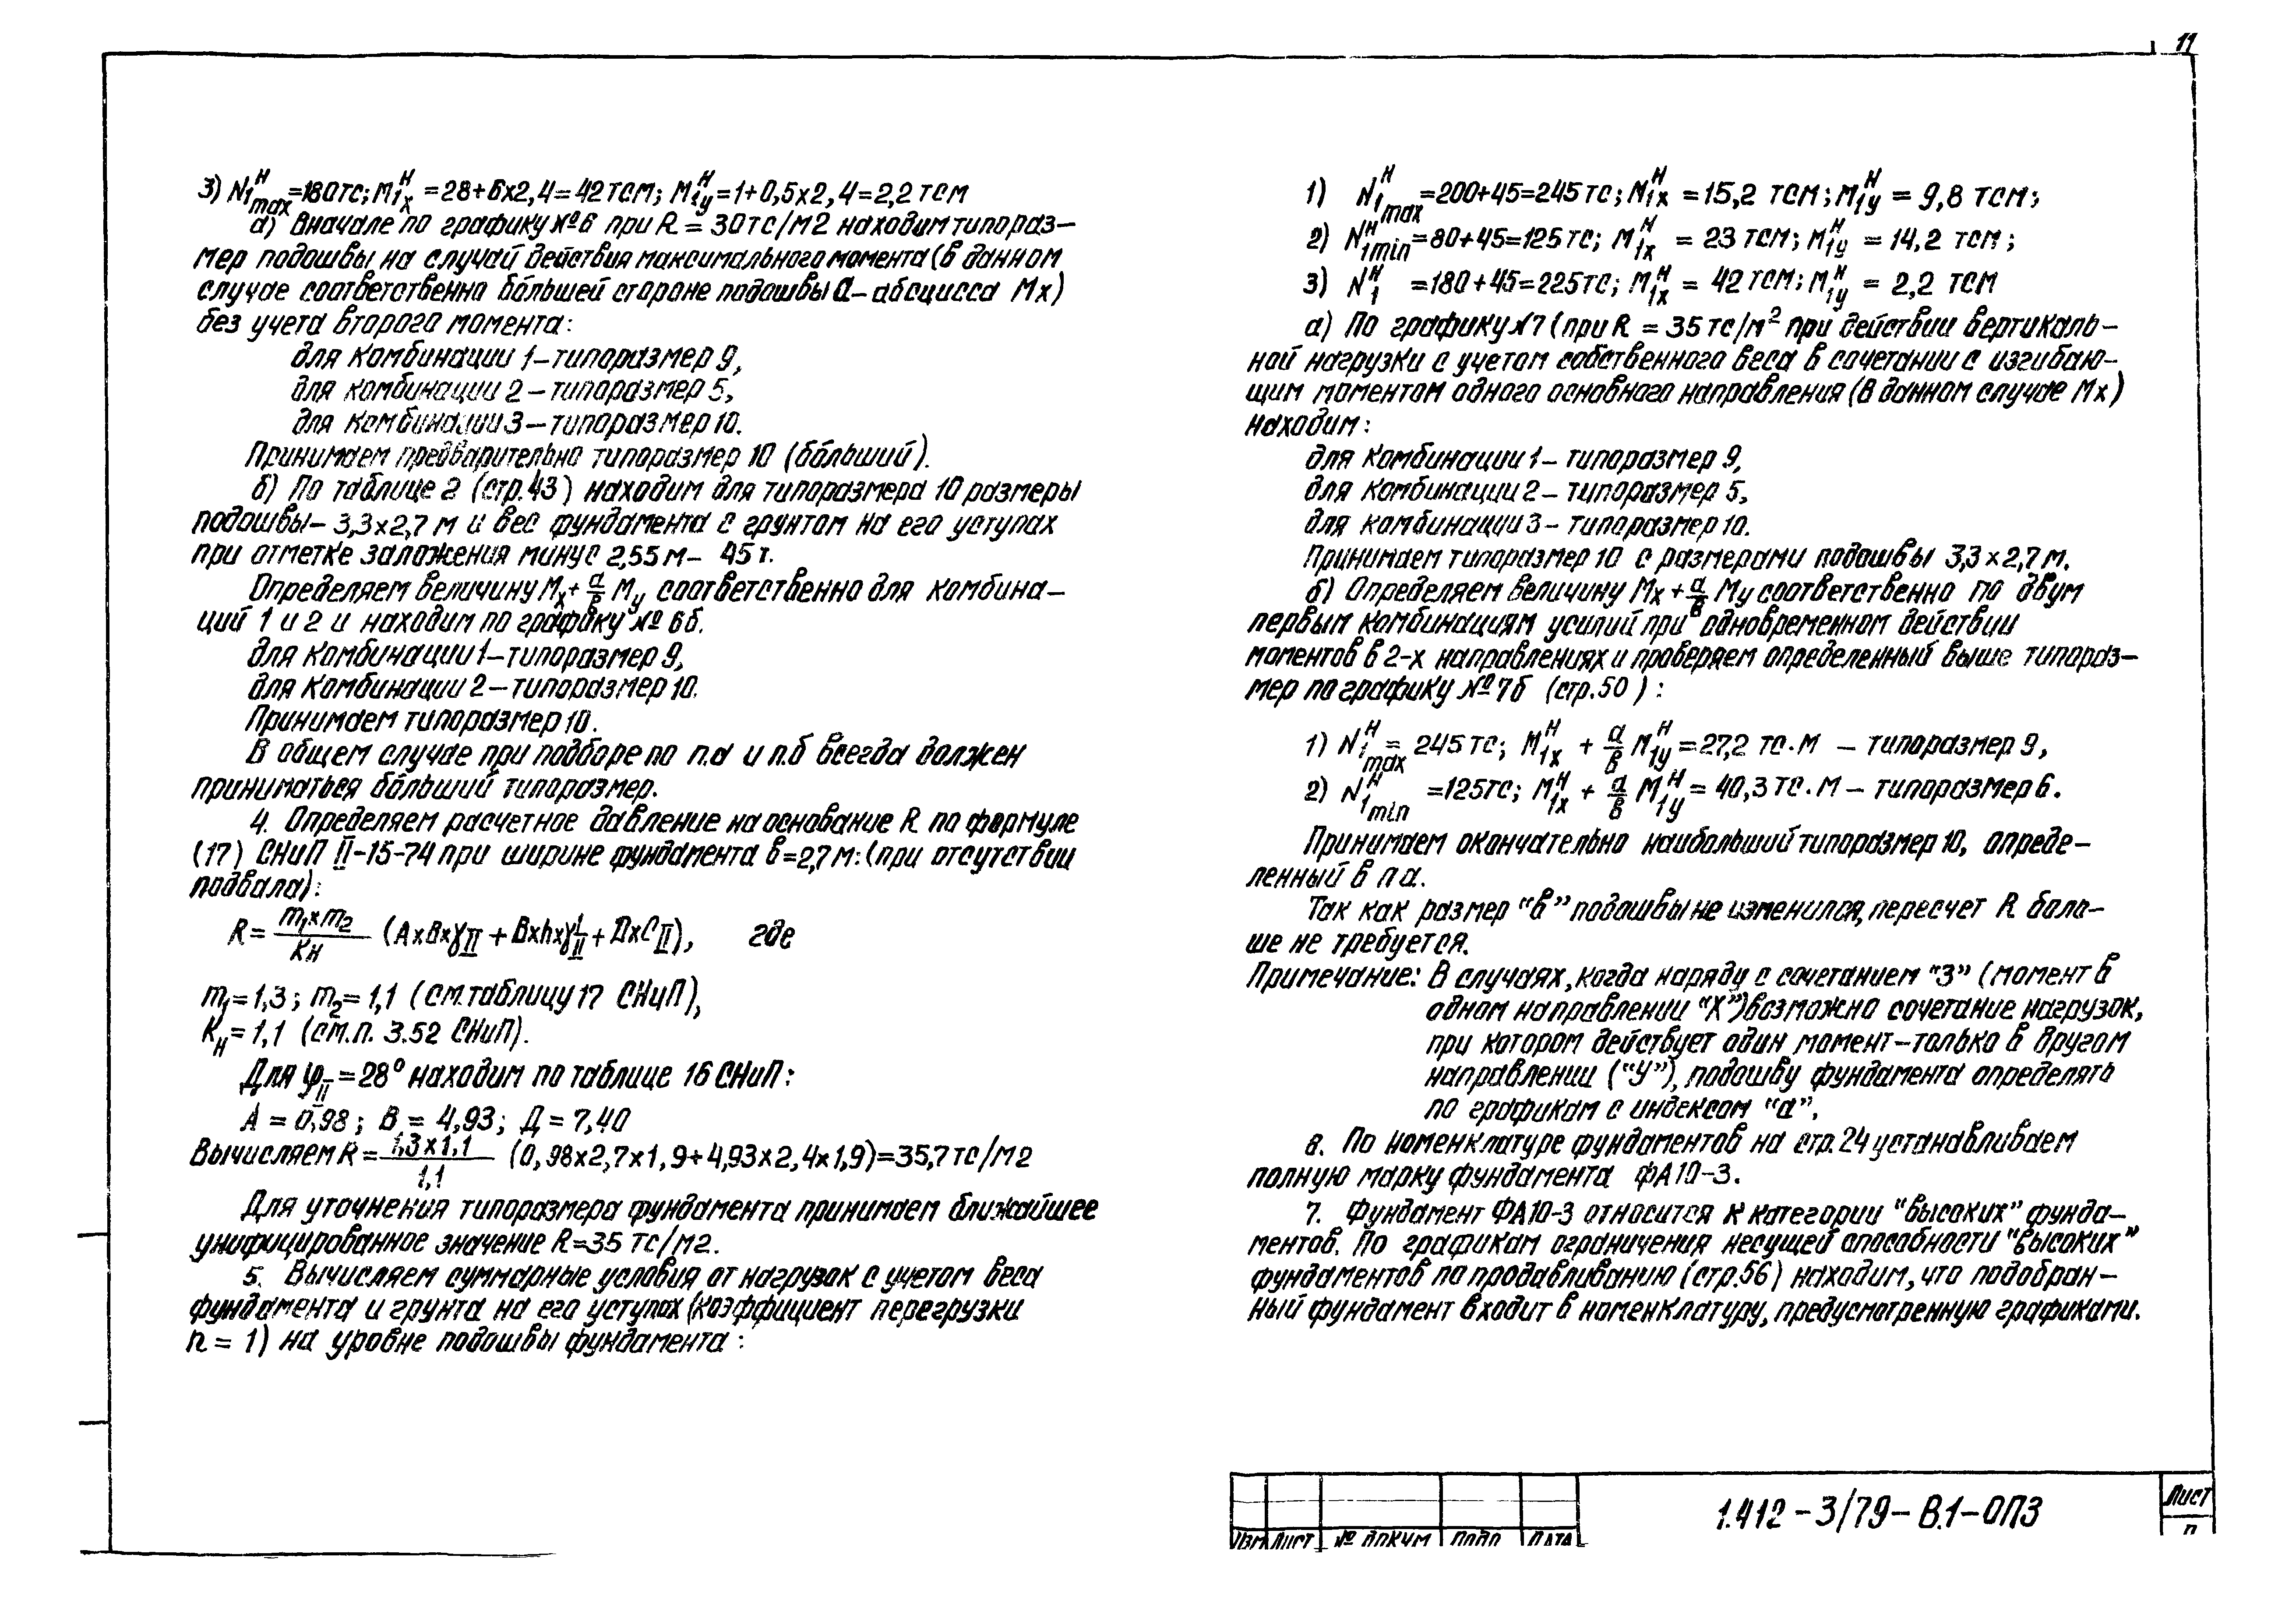 11
3) N₁ᴴmax=180тс; M₁ₓᴴ=28+6x2,4=42тсм; M₁уᴴ=1+0,5x2,4=2,2 тсм
а) Вначале по графику №6 при R=30тс/м2 находим типораз-
мер подошвы на случай действия максимального момента (в данном
случае соответственно бо́льшей стороне подошвы а-абсцисса Мх)
без учета второго момента:
для комбинации 1-типоразмер 9,
для комбинации 2-типоразмер 5,
для комбинации 3-типоразмер 10.
Принимаем предварительно типоразмер 10 (бо́льший).
б) По таблице 2 (стр.43) находим для типоразмера 10 размеры
подошвы-3,3x2,7 м и вес фундамента с грунтом на его уступах
при отметке заложения минус 2,55м- 45т.
Определяем величину Мх+ а/в Му соответственно для комбина-
ций 1 и 2 и находим по графику № 6б.
для комбинации 1-типоразмер 9,
для комбинации 2-типоразмер 10.
Принимаем типоразмер 10.
В общем случае при подборе по п.а и п.б всегда должен
приниматься бо́льший типоразмер.
4. Определяем расчетное давление на основание R по формуле
(17) СНиП II-15-74 при ширине фундамента в=2,7м:(при отсутствии
подвала):
R= m₁xm₂/Kн (AxBxγII+Bxhxγ'II+ДxCII), где
m₁=1,3; m₂=1,1 (см.таблицу 17 СНиП),
Kн=1,1 (см.п. 3.52 СНиП).
Для φII=28° находим по таблице 16 СНиП:
А=0,98; В=4,93; Д=7,40
Вычисляем R= 1,3x1,1/1,1 (0,98x2,7x1,9+4,93x2,4x1,9)=35,7тс/м2
Для уточнения типоразмера фундамента принимаем ближайшее
унифицированное значение R=35 тс/м2.
5. Вычисляем суммарные условия от нагрузок с учетом веса
фундамента и грунта на его уступах (коэффициент перегрузки
n=1) на уровне подошвы фундамента:
1) N₁ᴴmax=200+45=245тс; M₁ₓᴴ=15,2 тсм; M₁уᴴ=9,8 тсм;
2) N₁ᴴmin=80+45=125тс; M₁ₓᴴ=23 тсм; M₁уᴴ=14,2 тсм;
3) N₁ᴴ=180+45=225тс; M₁ₓᴴ=42 тсм; M₁уᴴ=2,2 тсм
а) По графику №7 (при R=35тс/м² при действии вертикаль-
ной нагрузки с учетом собственного веса в сочетании с изгибаю-
щим моментом одного основного направления (в данном случае Мх)
находим:
для комбинации 1- типоразмер 9,
для комбинации 2- типоразмер 5,
для комбинации 3- типоразмер 10.
Принимаем типоразмер 10 с размерами подошвы 3,3x2,7м.
б) Определяем величину Мх+ а/в Му соответственно по двум
первым комбинациям усилий при одновременном действии
моментов в 2-х направлениях и проверяем определенный выше типораз-
мер по графику №7б (стр.50):
1) N₁ᴴmax=245тс; M₁ₓᴴ+ а/в M₁уᴴ=27,2 тс.м - типоразмер 9,
2) N₁ᴴmin=125тс; M₁ₓᴴ+ а/в M₁уᴴ=40,3тс.м - типоразмер 6.
Принимаем окончательно наибольший типоразмер 10, опреде-
ленный в п а.
Так как размер "в" подошвы не изменился, пересчет R боль-
ше не требуется.
Примечание: В случаях, когда наряду с сочетанием "3" (момент в
одном направлении "Х") возможно сочетание нагрузок,
при котором действует один момент-только в другом
направлении ("У"), подошву фундамента определять
по графикам с индексом "а".
8. По номенклатуре фундаментов на стр.24 устанавливаем
полную марку фундамента ФА10-3.
7. Фундамент ФА10-3 относится к категории "высоких" фунда-
ментов. По графикам ограничения несущей способности "высоких"
фундаментов по продавливанию (стр.56) находим, что подобран-
ный фундамент входит в номенклатуру, предусмотренную графиками.
Изм Лист № докум Подп Дата
1.412-3/79-В.1-ОПЗ
Лист